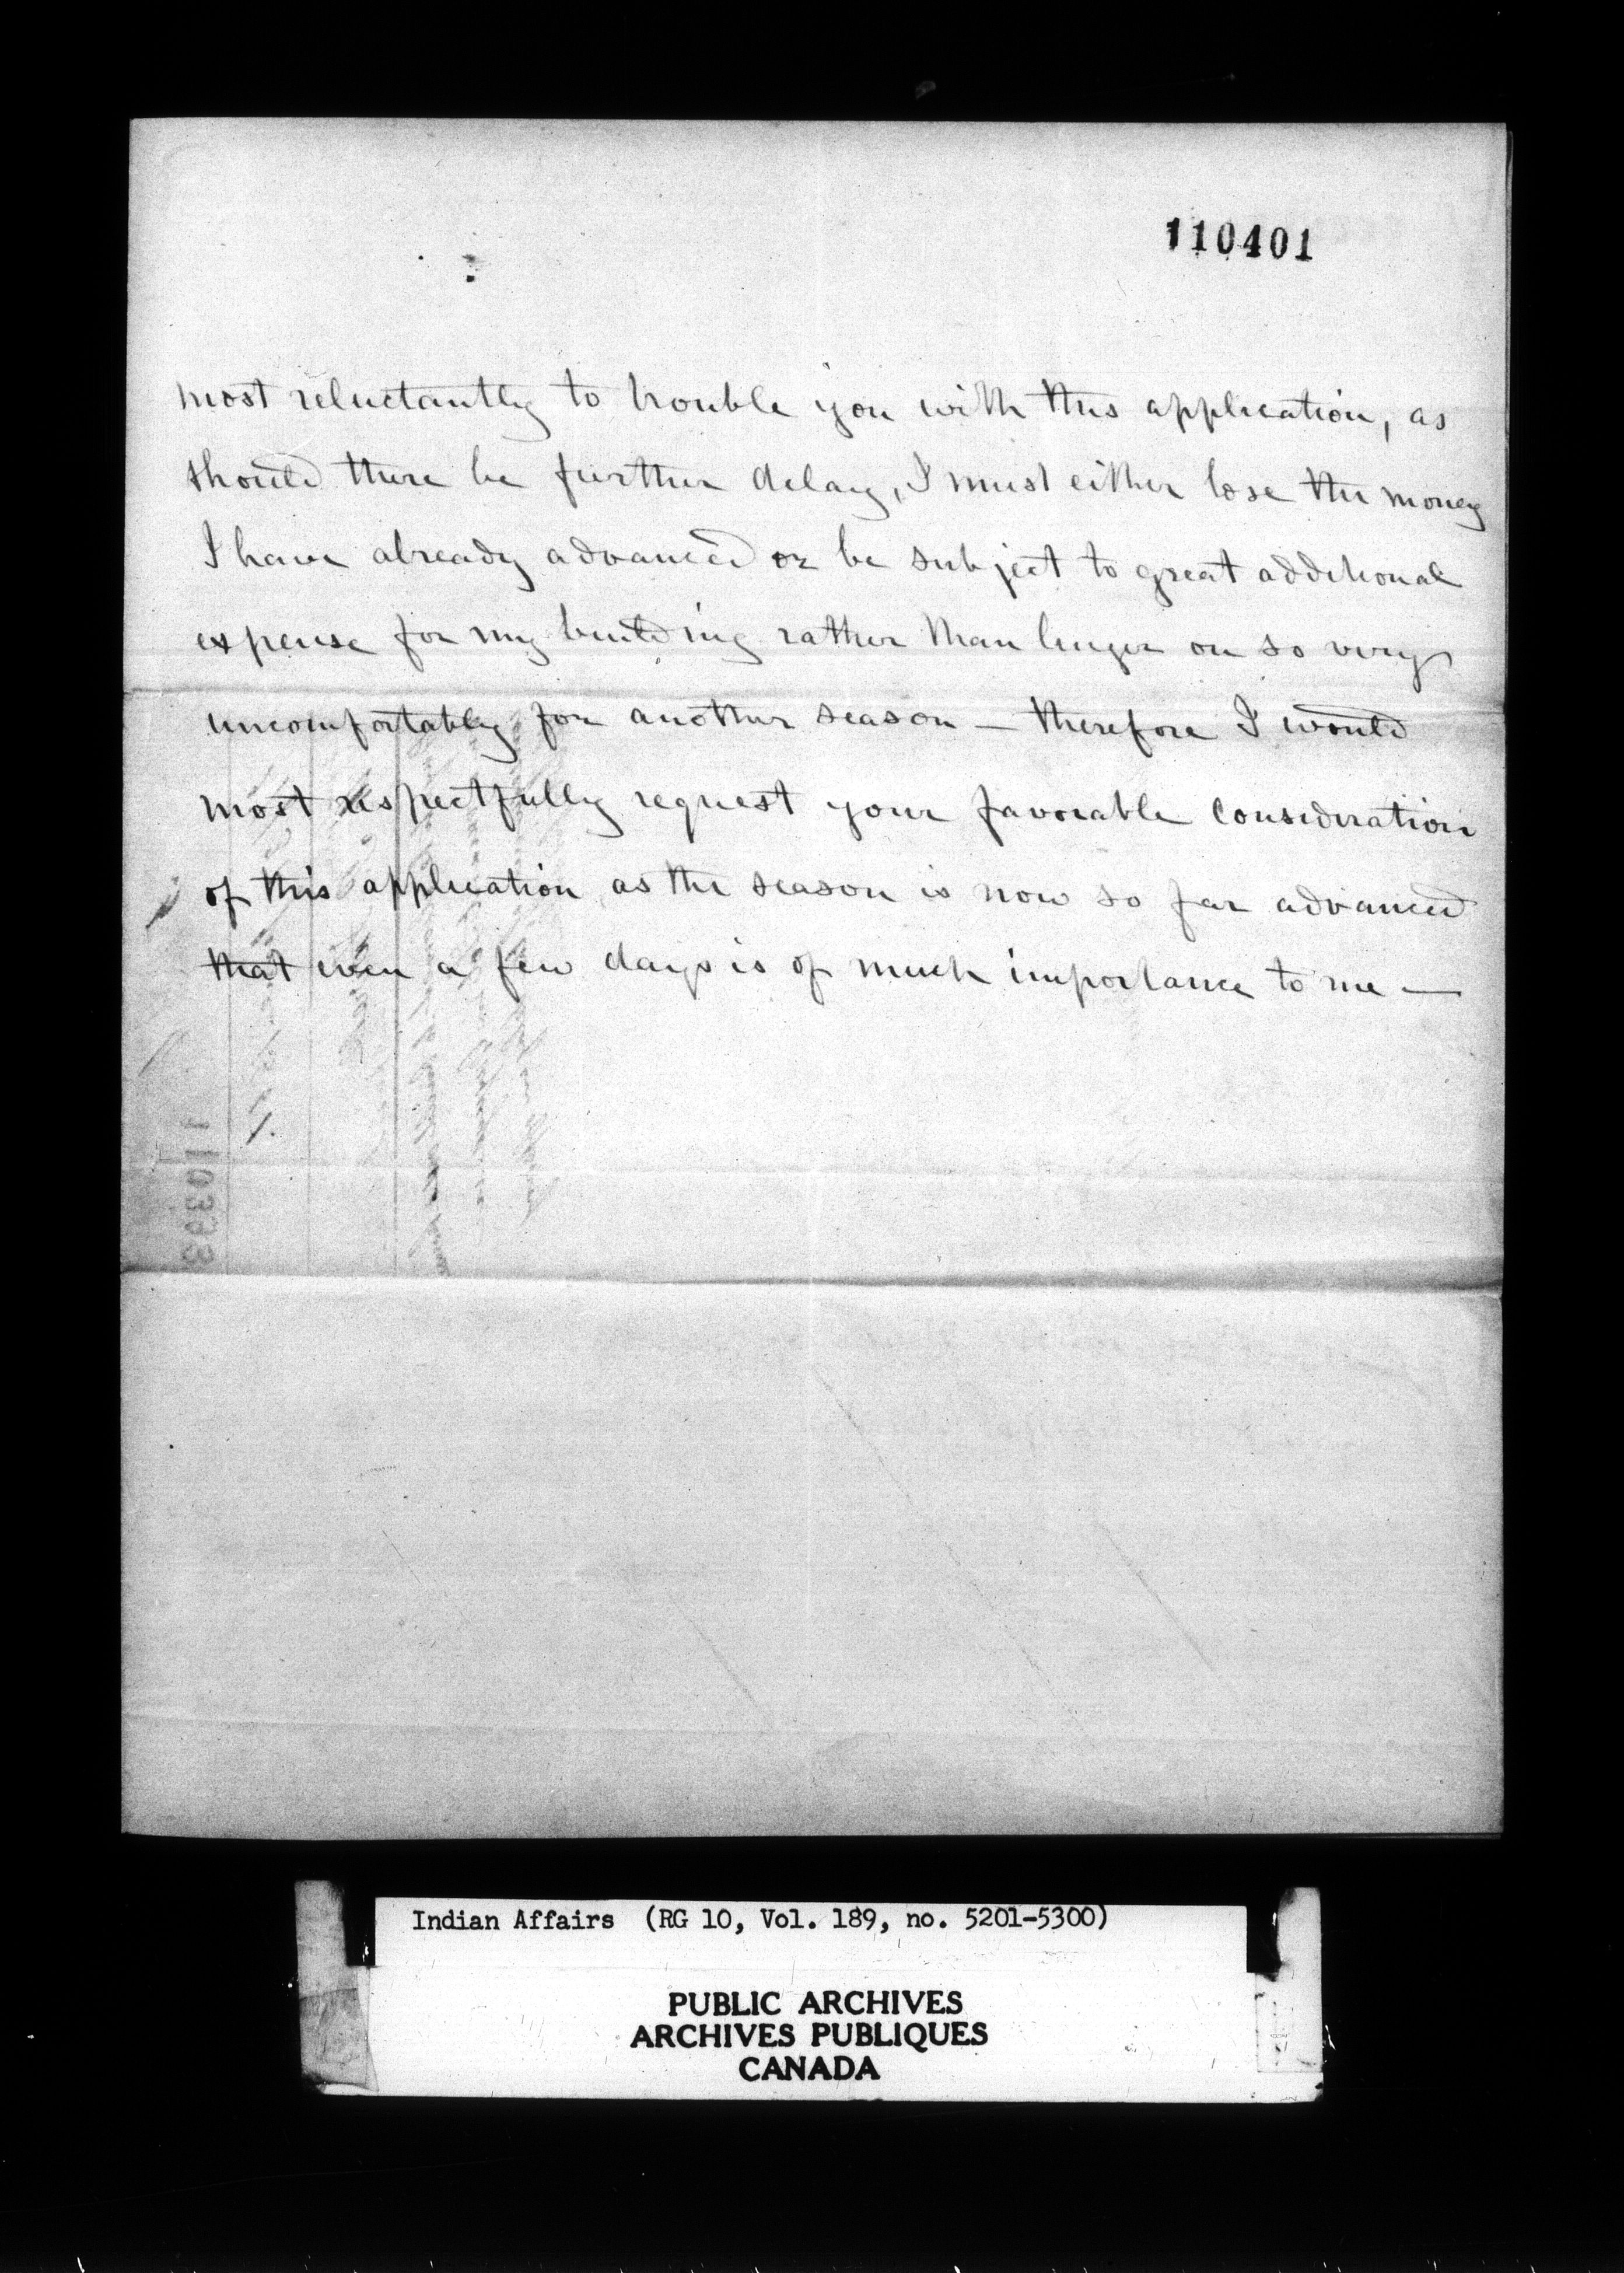 110401
most reluctantly to trouble you with this application, as
should there be further delay, I must either lose the money
I have already advanced or be subject to great additional
expense for my building rather than linger on so very
uncomfortably for another season — therefore I would
most respectfully request your favorable consideration
of this application as the season is now so far advanced
that even a few days is of much importance to me —
110393
Indian Affairs (RG 10, Vol. 189, no. 5201-5300)
PUBLIC ARCHIVES
ARCHIVES PUBLIQUES
CANADA